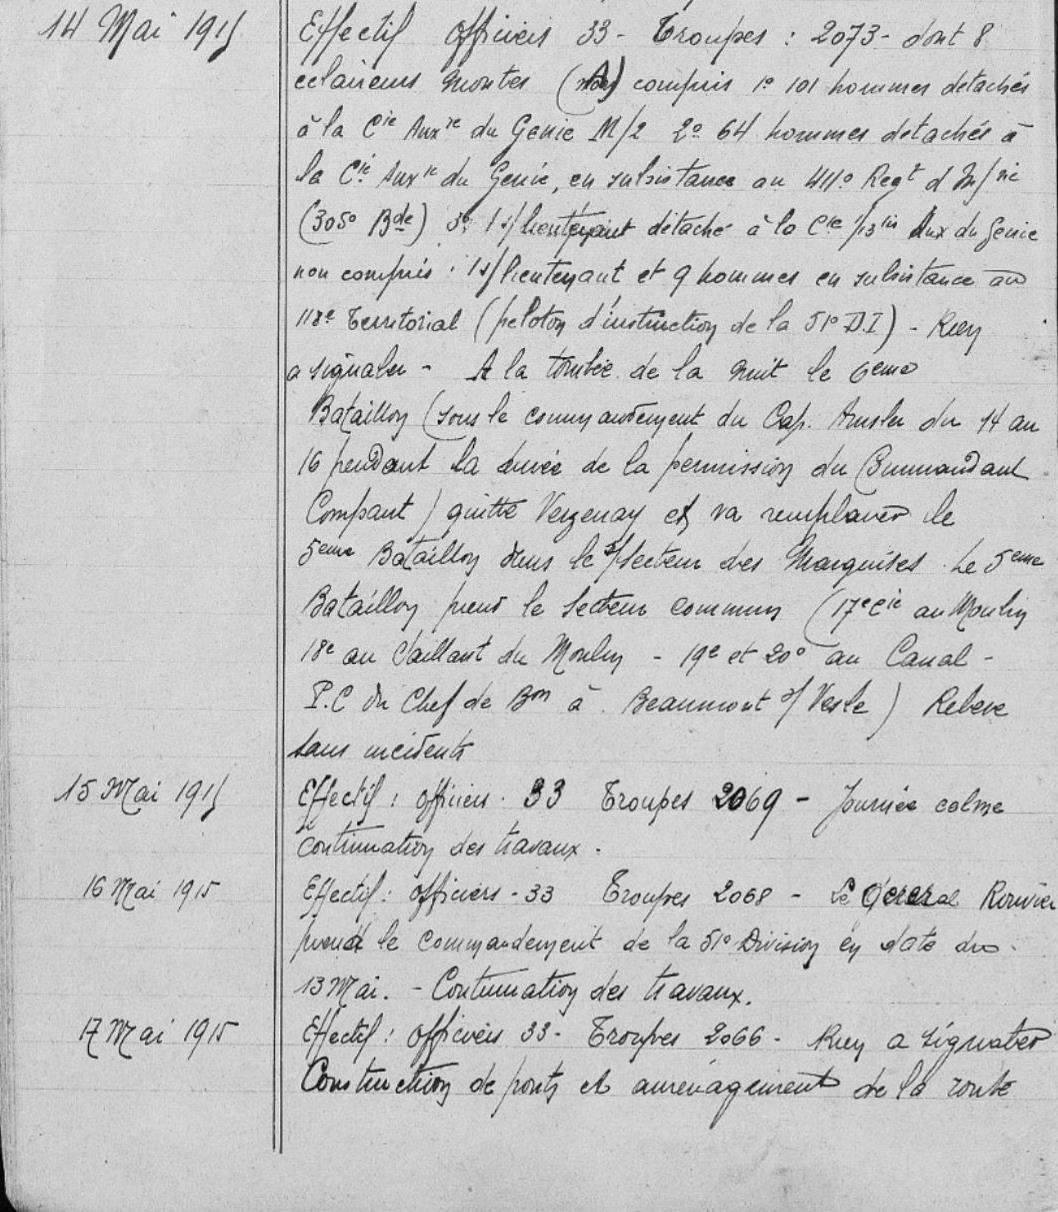 14 Mai 1915 Effectif officiers 33 - Troupes : 2073 - dont 8
eclaireurs montés (non) compris 1° 101 hommes detachés
à la Cie Auxre du Genie M/2 2° 64 hommes detachés à
la Cie Auxre du Genie, en subsistance au 411° Regt d'Inf/rie
(305° Bde) 3° 1 s/lieutenant détaché à la Cie Aux du Genie
non compris : 1 s/lieutenant et 9 hommes en subsistance au
118e Territorial (peloton d'instruction de la 51e D.I) - Rien
a signaler - A la tombée de la nuit le 6eme
Bataillon (sous le commandement du Cap. Amsler du 14 au
16 pendant la durée de la permission du Commandant
Compant) quitte Verzenay et va remplacer le
5eme Bataillon dans le s/secteur des Marquises. Le 5eme
Bataillon prend le secteur commun (17e Cie au Moulin
18e au Saillant du Moulin - 19e et 20e au Canal -
P.C du Chef de Bon à Beaumont s/ Vesle) Releve
sans incidents
15 Mai 1915 Effectif : officiers . 33 Troupes 2069 - Journée calme
continuation des travaux .
16 Mai 1915 Effectif : officiers - 33 Troupes 2068 - Le General Rouvier
prend le commandement de la 51e Division en date du
13 Mai. - Continuation des travaux.
17 Mai 1915 Effectif : officiers 33 - Troupes 2066 - Rien a signaler
Construction de ponts et aménagement de la route